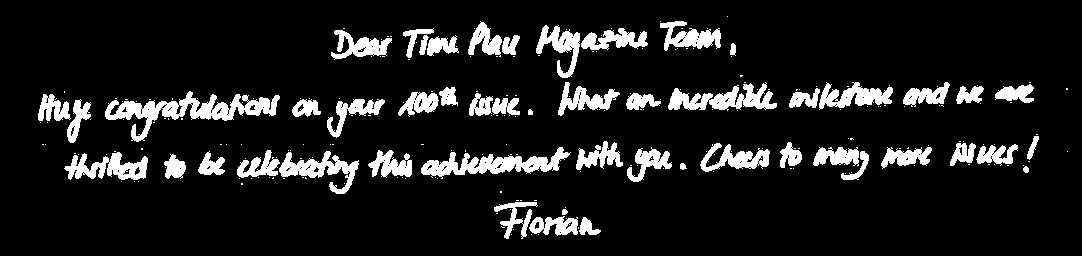 Dear Time Place Magazine Team,
Huge congratulations on your 100th issue. What an incredible milestone and we are
thrilled to be celebrating this achievement with you. Cheers to many more issues!
Florian